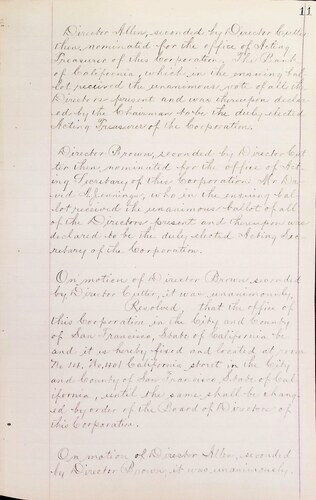 11
Director Allen, seconded by Director Cutter
then nominated for the office of Acting
Treasurer of this Corporation, The Bank
of California, which, in the ensuing bal
lot received the unanimous vote of all the
Directors present and was thereupon declar
ed by the Chairman to be the duly elected
Acting Treasurer of the Corporation.
Director Brown, seconded by Director Cut
ter then, nominated for the office of Act
ing Secretary of this Corporation Mr
Jennings, who in the ensuing bal
lot received the unanimous ballot of all
of the Directors present and thereupon was
declared to be the duly elected Acting Sec
retary of the Corporation.
On motion of Director Brown, seconded
by Director Cutter, it was unanimously
Resolved that the office of
this Corporation in the City and County
of San Francisco, State of California be
and it is hereby fixed and located at room
No. California street in the City
and County of San Francisco, State of Cal
ifornia, until the same shall be chang
ed by order of the Board of Directors of
this Corporation.
On motion of Director Allen, seconded
by Director Brown, it was unanimously,